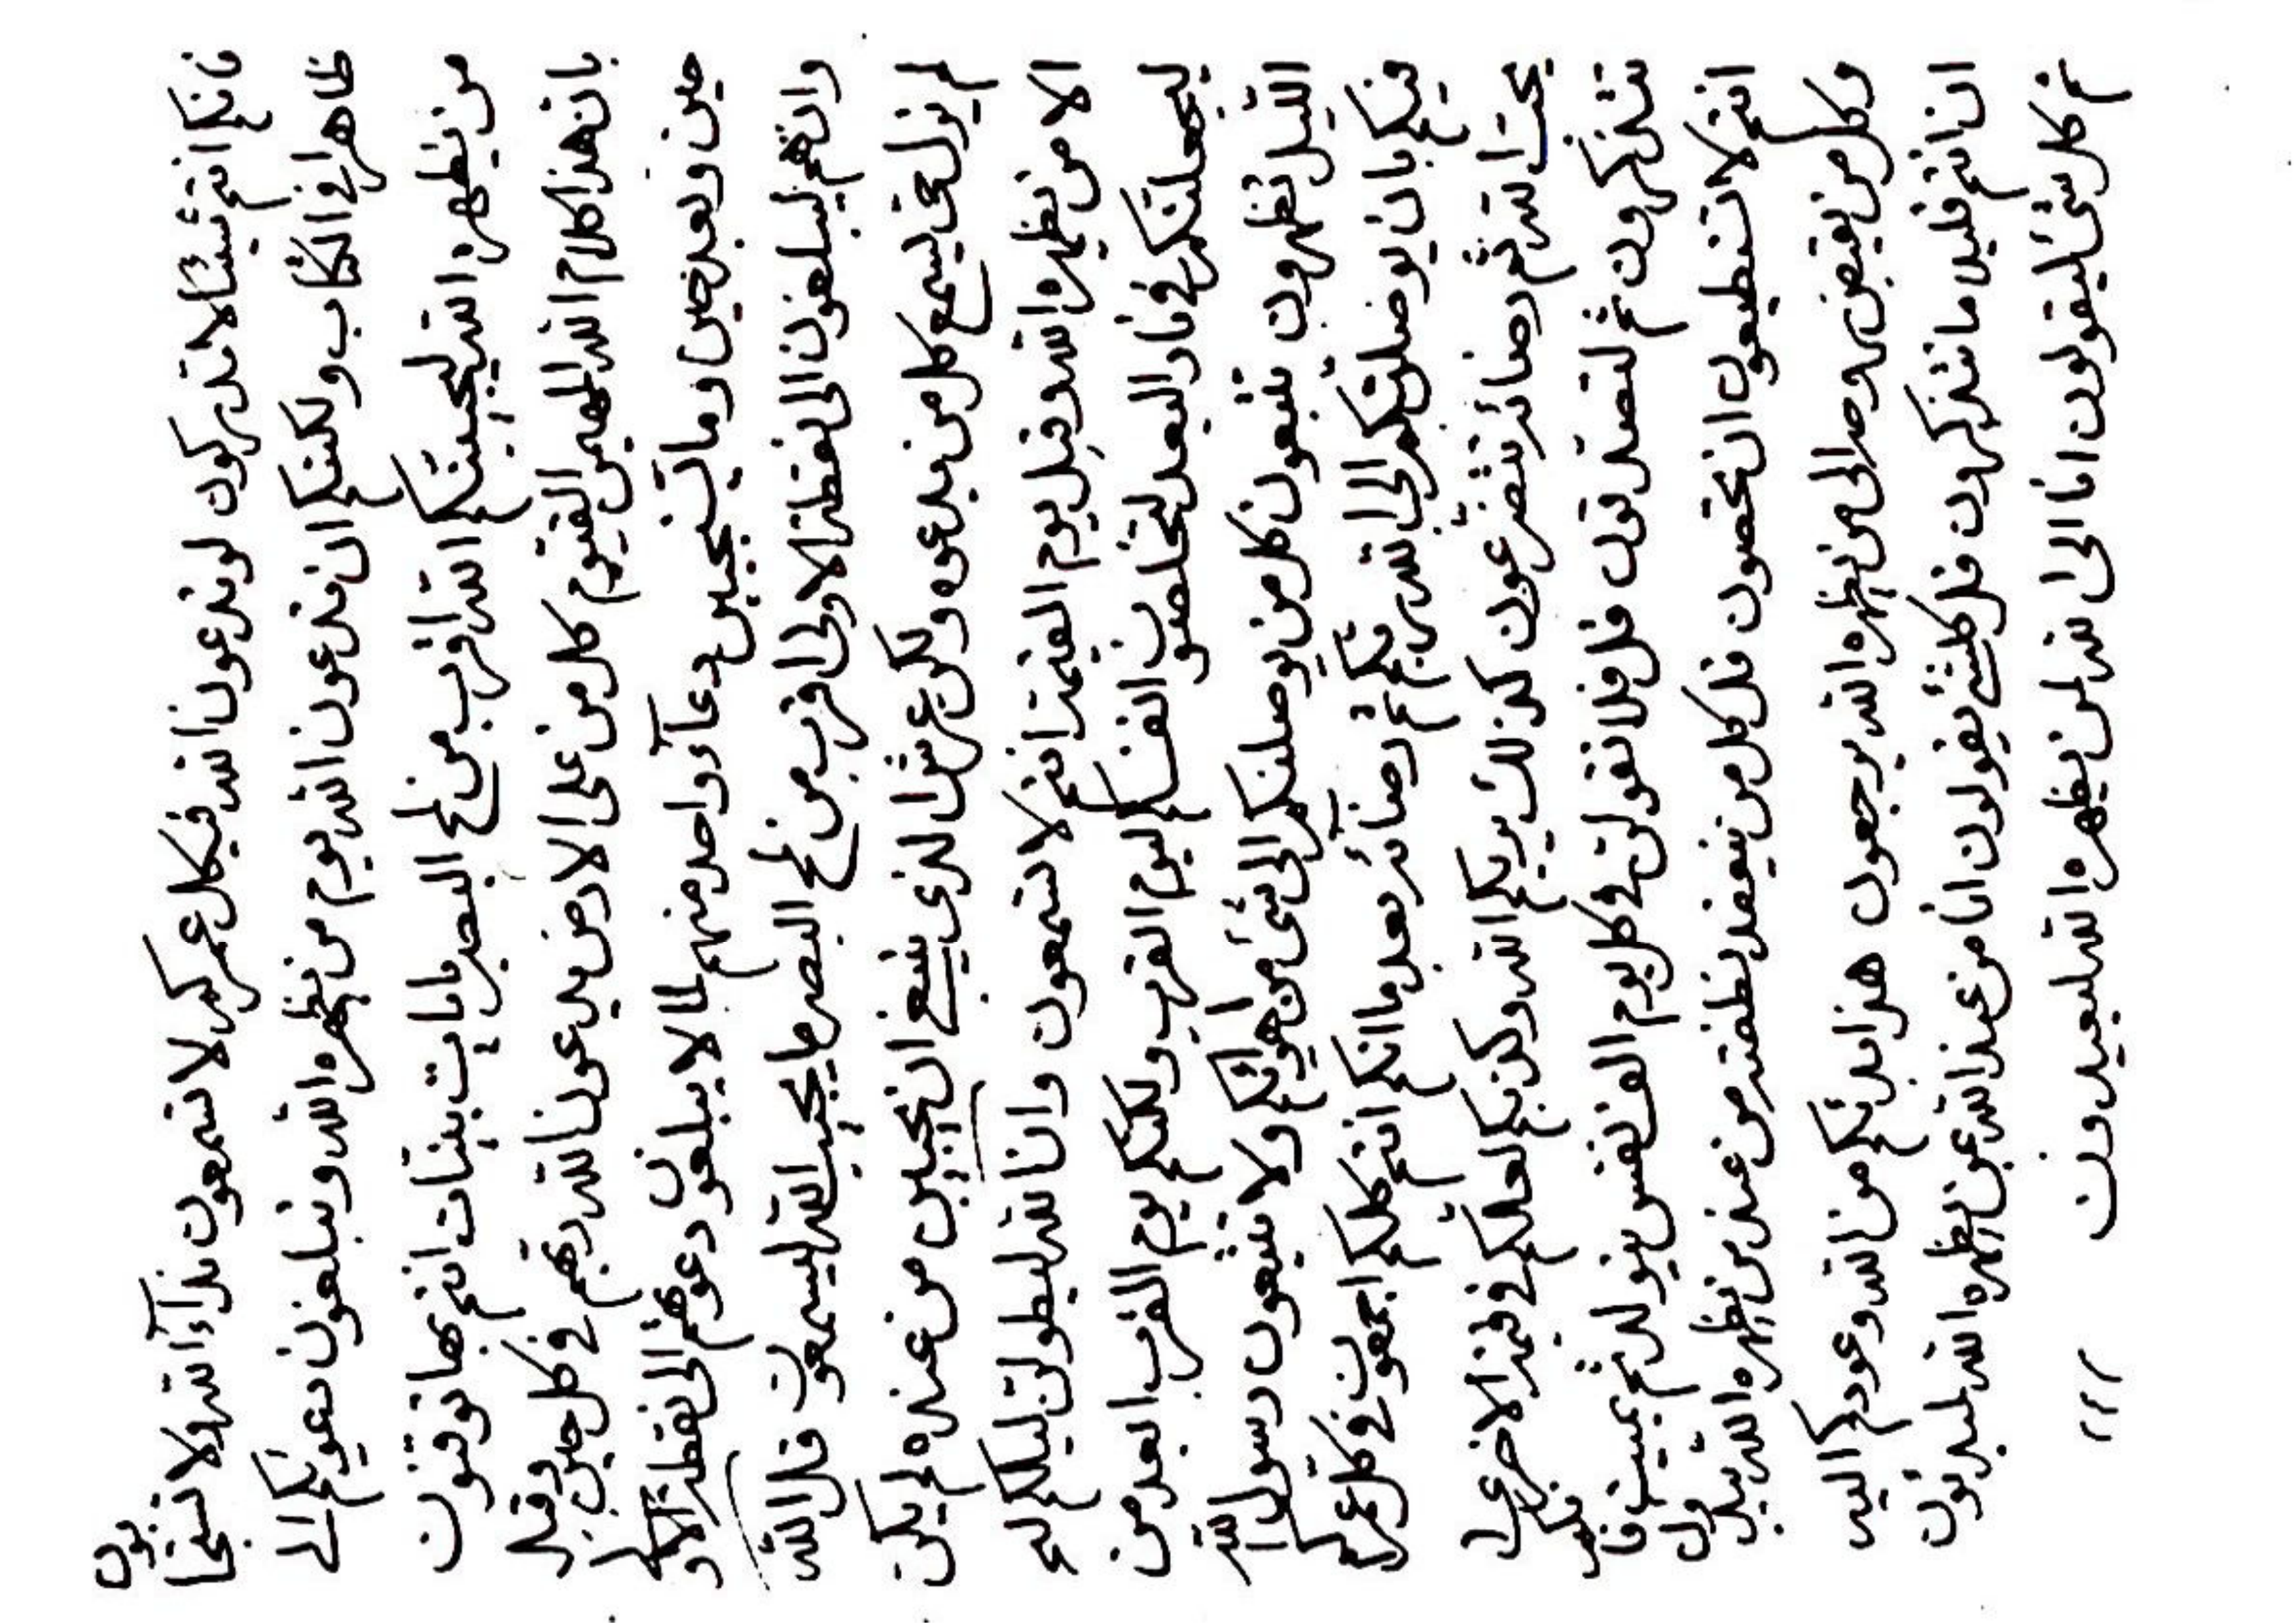 فانكم انتم شيئا لا تدركون لو تدعون الله فيكل عمركم لا تسمعون نداء الله ولا تستجابون
ظاهرا في الكتاب ولكنكم ان تدعون الله يوم من يظهره الله وتبلغون دعوتكم الى
من يظهره الله ليجيبنكم الله اقرب من لمح البصر بايات بينات انتم بها توقنون
بان هذا كلام الله المهيمن القيوم كل من على الارض يدعون الله ربهم في كل حين وقبل
حين وبعد حين وما يستجيبن دعاء واحد منهم لما لا يبلغون دعوتهم الى نقطة الاولى
وان هم ليبلغون الى نقطة الاولى اقرب من لمح البصر ما يجيب الله ليسمعون قل الله
لم يزل حق يسمع كل من يدعوه ولكن عرش الذي ينبغي ان يجيبن من عنده لم يكن
الا من يظهره الله وقبل يوم القيمة انتم لا تسمعون وان الله ليطولن ليلكم
ليجعلنكم في نار البعد لتخلصون انفسكم ليوم القرب ولكنكم يوم القرب ابعد من
الليل تظهرون تتبعون كل من يوصلنكم الى شئ من اهوائكم ولا تتبعون رسول الله
فيكم بان يوصلنكم الى الله ربكم ثم رضائه بعد ما انكم انتم كلكم اجمعون في كل عمركم
بحب الله ثم رضائه تتضرعون كذلك يريكم الله وكذبكم لعلكم في الاخرى
تتذكرون ثم لتصدقون قل فلا تقولن في كل يوم الف نفس يتولد ثم يميت
انتم لا تستطيعون ان تحصون قل كل من ينعقد نطفته من عند من يظهره الله يبدؤن
وكل من يقبض روحه الى من يظهره الله يرجعون هذا بدئكم من الله وعودكم اليه
ان انتم قليلا ما تتذكرون قل كلشئ يقولون انا من عند الله عن يظهره الله لمبدئون
ثم كل شئ ليقولون انا الى الله لمن يظهره الله لمعيدون